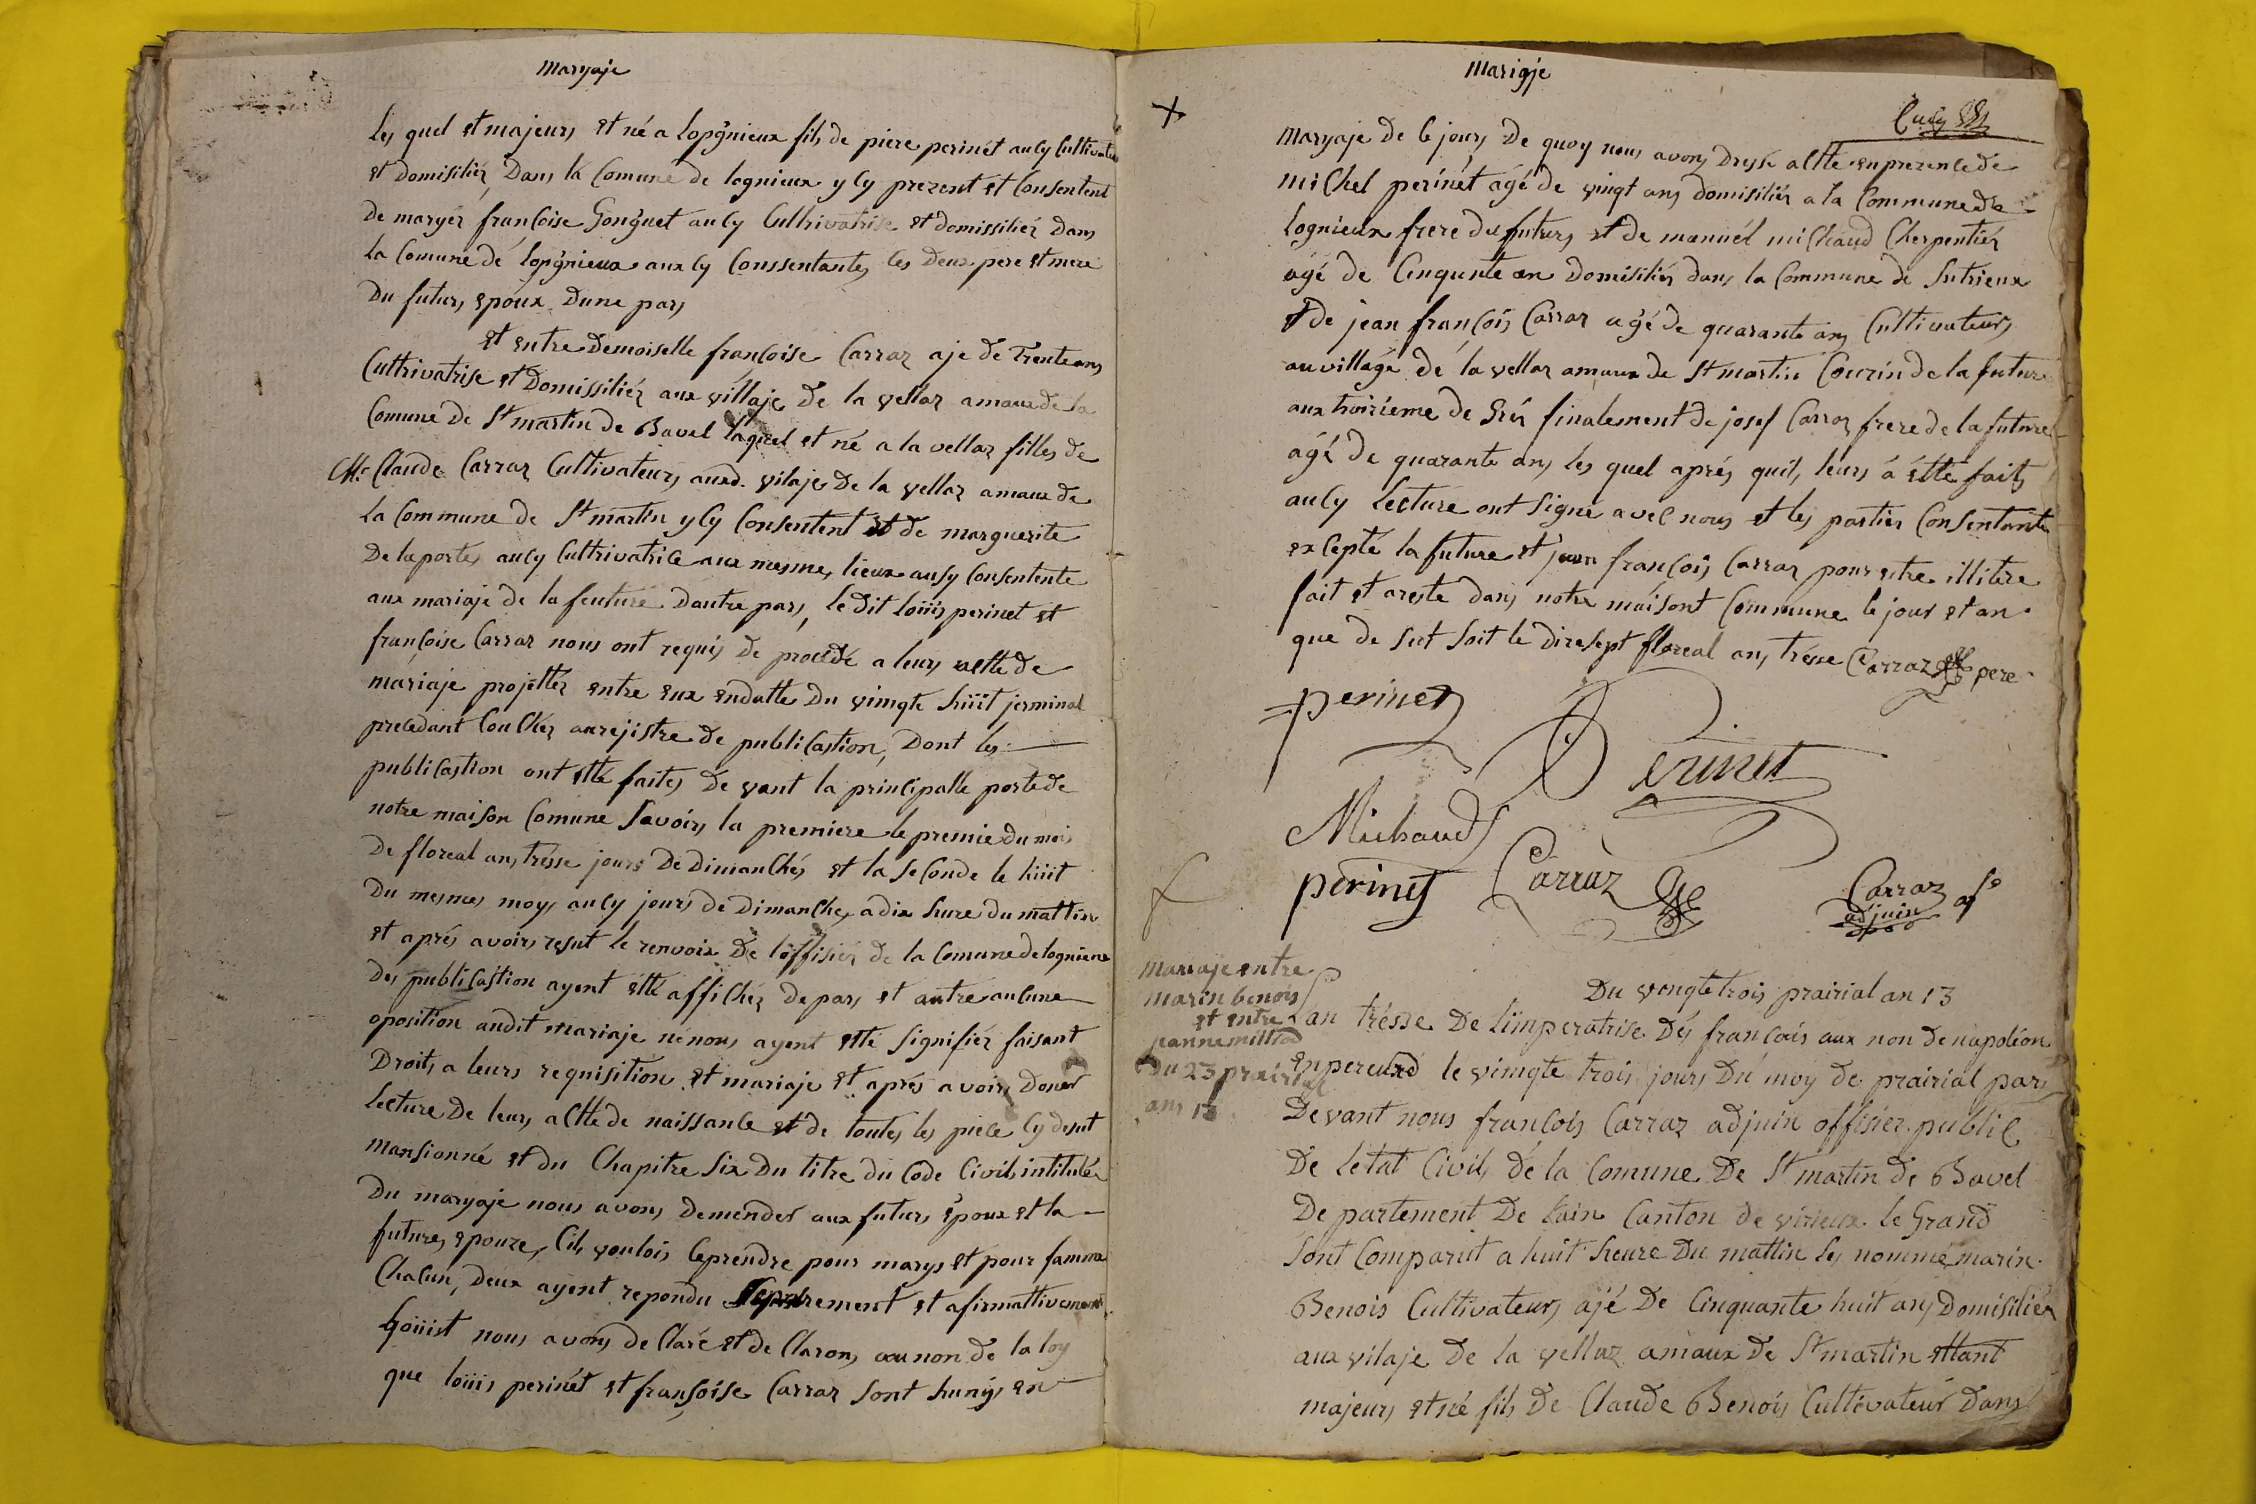 maryaje
les quel et majeurs et né a lopgnieux fils de piere perinét aucy Cultivateur
et domisiliér Dans la Comune de lognieux y Cy prezent et Consentent
de maryér françoise Gonguet aucy Cultrivatrise et domissiliér Dans
la Comune dé lopgnieux aux Cy Conssentantes les Deux pere et mere
Du futurs époux Dune pars
et entre Demoiselle françoise Carraz aje de Trente ans
Cultrivatrise et Domissiliér aux villaje De la vellaz amaux de la
Comune De St martin de Bavel laquel et né a la vellaz filles de
Mc Claude Carraz Cultivateurs aud. vilaje De la vellaz amaux de
la Commune de St martin y Cy Consentent et de marguerite
De la portes aucy Cultrivatrice aux mesmes lieux ausy Consentente
aux mariaje de la feuture Dautre pars, le dit loüis perinet et
françoise Carraz nous ont requis de procedé a leurs actte de
mariaje projettér entre eux endatte Du vimgte hüit jerminal
precedant Couchér aurejistre de publicastion, Dont les
publicastion ont etté faites de vant la principalle porte de
notre maison Comune Savoirs la premiere le premie du mois
De floreal ans trésse jours De Dimanchés et la seConde le hüit
Du mesmes moys aucy jours de Dimanches a dix hure du mattin
et aprés avoirs resut le renvoix De loffisiér de la Comune de logniene
Des publicastion ayent etté affichér de pars et autre aucune
oposition audit mariaje né nous ayent etté signifiér faisant
Droits a leurs requisition et mariaje et aprés avoirs Donér
lecture De leurs actte de naissance et de toutes les piece Cy desut
mansionné et du Chapitre Six Du titre du Code Civils intitulér
Du maryaje nous avons Demendér aux futurs époux et la
futures epouze, Cils voulois Ceprendre pour marys et pour famme
Chacun, Deux ayent repondu Separement et afirmattivement
nous avons de Claré et de Clarons au non de la loy
que loüis perinét et françoise Carraz sont hunÿs en
marigje
maryaje De Ce jours De quoy nous avons Dressé actte enprezence de
miChel perinét agé de vingt ans domisiliér a la Commune de
lognieux frere du futurs et de manuél miChaud Cherpentiér
agé de Cinqunte an Domisiliér dans la Commune de Sutrieux
et de jean françois Carraz agé de quarante ans Cultivateurs
au village dé la vellaz amaux de St martin Couzin de la future
aux troizieme de Gréz finalement de josef Carraz frere de la future
agé De quarante ans les quel aprés quil, leurs a étté faits
aucy lecture ont signé avec nous et les partier Consentante
excepté la future et jean françois Carraz pour etre illitére
fait et areste dans notre maisont Commune le jour et an
que de sut soit le dixsept floreal ans trésse Carraz pere
perinet
Perinet
Michaud
perinet Carraz
Carraz
adjuin
Mariaje entre
marin benois
et entre
jeanne milliod
du 23 prairial
ans 13
Du vingte trois prairial an 13
Lan trésse De limperatrise Dés françois aux non de napoléon
enpereurd le vimgte trois jours Du moy de prairial pars
Devant nous françois Carraz adjuin offisier public
De létat Civils de la Comune De St martin de Bavel
De partement De lain Canton de virieux le Grand
Sont Comparut a huit heure Du mattin les nommé marin
Benois Cultivateurs ajé De Cinquante huit ans Domisiliér
aux vilaje De la vellaz amaux de St martin ettant
majeurs et né fils De Claude Benois Cultivateur Dans